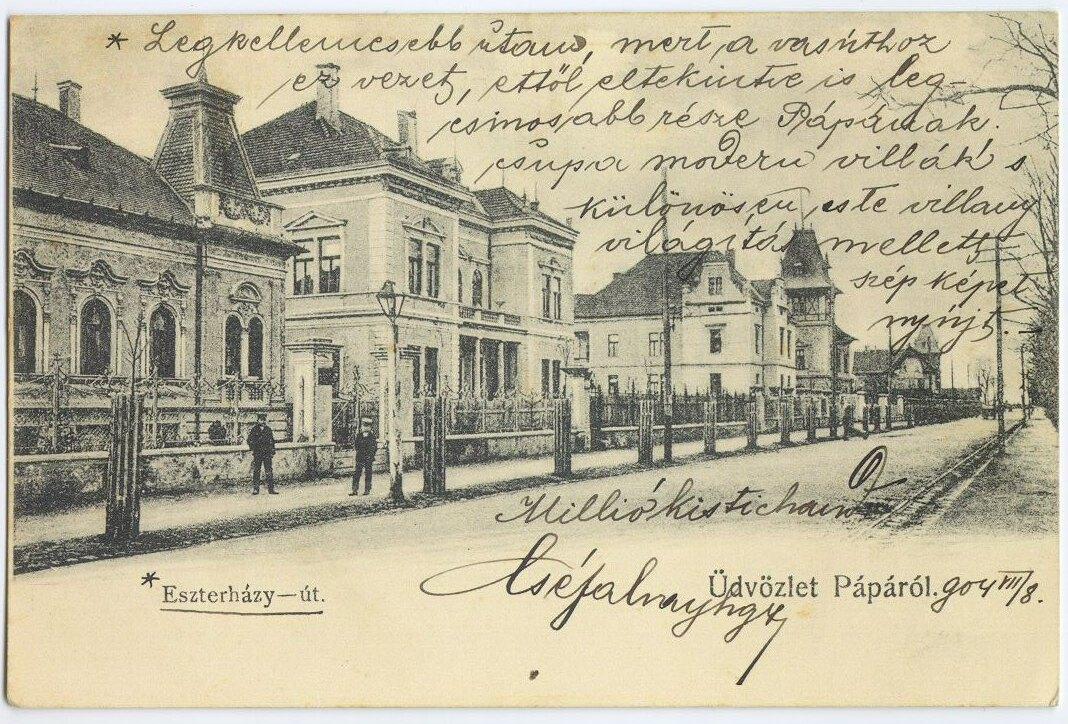 * Legkellemesebb útam, mert a vasúthoz
ez vezet, ettől eltekintve is leg-
csinosabb része Pápának.
csupa modern villák s
különösen este villany
világítás mellett
szép képet
nyújt.
Millió kistiehand
* Eszterházy—út.
Üdvözlet Pápáról. 904 VII/8.